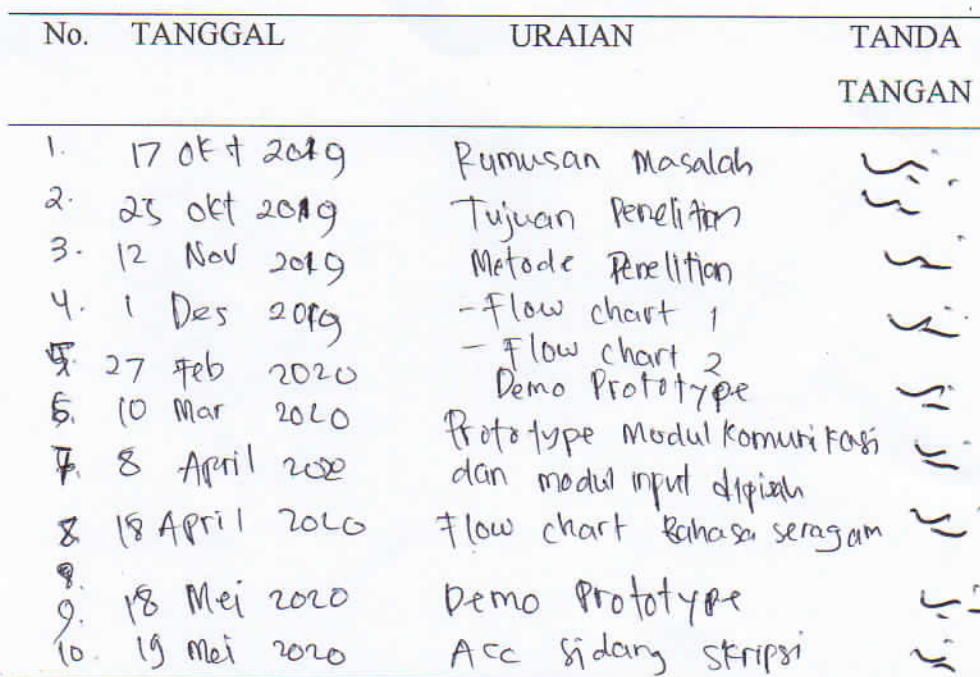 No. TANGGAL URAIAN TANDA
TANGAN
1. 17 Okt 2019 Rumusan Masalah
2. 25 okt 2019 Tujuan Penelitian
3. 12 Nov 2019 Metode Penelitian
4. 1 Des 2019 - Flow chart 1
- Flow chart 2
5. 27 Feb 2020 Demo Prototype
6. 10 Mar 2020
Prototype Modul Komunikasi
7. 8 April 2020 dan modul input dipisah
8. 18 April 2020 Flow chart Bahasa seragam
9. 18 Mei 2020 Demo Prototype
10. 19 Mei 2020 Acc sidang skripsi